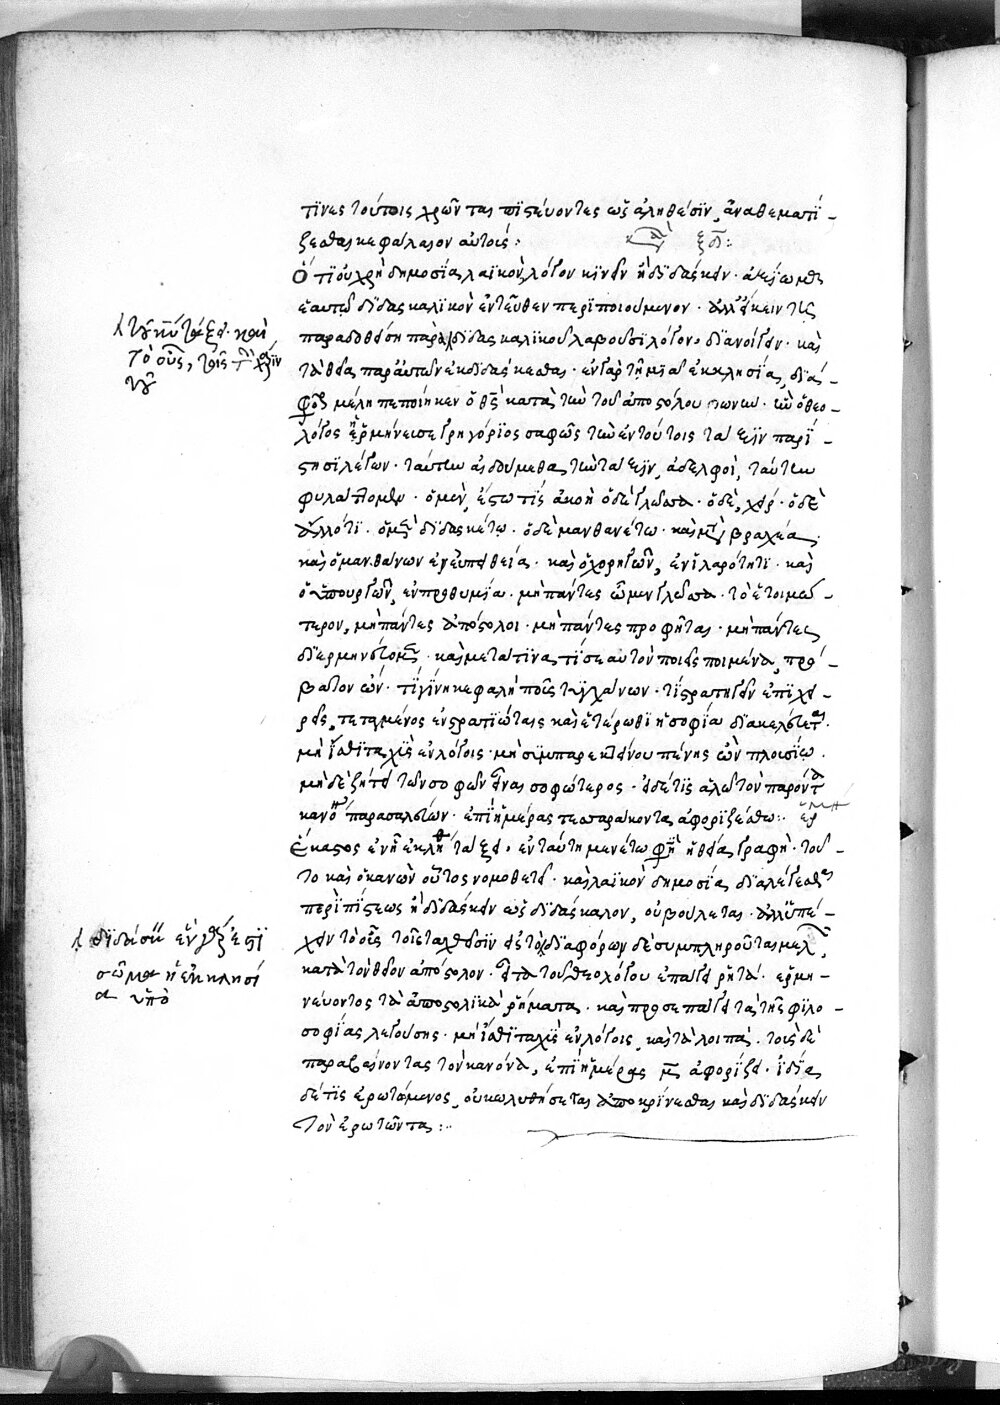 τινες τούτοις χρῶνται πιστεύοντες ὡς ἀληθέσιν, ἀναθεματί-
ζεσθαι κεφάλαιον αὐτοῖς:
Ὅτι οὐ χρὴ δημοσία λαϊκὸν λόγον κινεῖν ἢ διδάσκειν· ἀξίωμα
ἑαυτῷ διδασκαλικὸν ἐντεῦθεν περιποιούμενον· ἀλλ' εἴκειν τῇ
παραδοθείση παρὰ διδασκαλικοῦ λαβοῦσι λόγου, διανοίγειν· καὶ
τὰ θεῖα παρ' αὐτῶν ἐκδιδάσκεσθαι· ἐν γὰρ τῇ μιᾷ ἐκκλησία, διά-
φορα μέλη πεποίηκεν ὁ θς κατὰ τὴν τοῦ ἀποστόλου φωνήν· ἣν ὁ θεο-
λόγος ἑρμήνευσε γρηγόριος σαφῶς τὴν ἐν τούτοις τάξιν παρί-
στησι λέγων· ταύτην αἰδούμεθα τὴν τάξιν, ἀδελφοὶ, ταύτην
φυλάττομεν· ὁ μὲν, ἔστω τίς ἀκοὴ ὁ δὲ γλῶσσα· ὁ δὲ, χείρ· ὁ δὲ
ἄλλό τι· ὁ μὲν διδασκέτω· ὁ δὲ μανθανέτω· καὶ μετὰ βραχέα·
καὶ ὁ μανθάνων ἐν εὐπειθεία· καὶ ὁ χορηγῶν, ἐν ἱλαρότητι· καὶ
ὁ ὑπουργῶν, ἐν προθυμία· μὴ πάντες ὦμεν γλῶσσα· τὸ ἑτοιμώ-
τερον, μὴ πάντες ἀπόστολοι· μὴ πάντες προφῆται· μὴ πάντες
διερμηνεύομεν· καὶ μετά τινα· τί σεαυτὸν ποιεῖς ποιμένα, πρό-
βατον ὤν· τί γίνη κεφαλὴ ποῦς τυγχάνων· τί στρατηγεῖν ἐπιχει-
ρεῖς, τεταγμένος ἐν στρατιώταις καὶ ἑτέρωθι ἡ σοφία διακελεύεται·
μὴ ἴσθι ταχὺς ἐν λόγοις· μὴ συμπαρεκτείνου πένης ὢν πλουσίω·
μὴ δὲ ζήτει τῶν σοφῶν εἶναι σοφώτερος· εἰ δέ τις ἁλῶ τὸν παρόντα
κανόνα παρασαλεύων· ἐπὶ ἡμέρας τεσσαράκοντα ἀφοριζέσθω:
Ἕκαστος ἐν ᾗ ἐκλήθη τάξει, ἐν ταύτη μενέτω φησὶν ἡ θεία γραφή· τοῦ-
το καὶ ὁ κανὼν οὗτος νομοθετεῖ· καὶ λαϊκὸν δημοσία διαλέγεσθαι
περὶ πίστεως ἢ διδάσκειν ὡς διδάσκαλον, οὐ βούλεται· ἀλλ' ὑπέ-
χειν τὸ οὖς
κατὰ τὸν θεῖον ἀπόστολον· εἶτα τοῦ θεολόγου ἐπάγει ῥητά· ἑρμη-
νεύοντος τὰ ἀποστολικὰ ῥήματα· καὶ προσεπάγει τὰ τῆς φιλο-
σοφίας λεγούσης· μὴ ἴσθι ταχὺς ἐν λόγοις, καὶ τὰ λοιπά· τοὺς δὲ
παραβαίνοντας τὸν κανόνα, ἐπὶ ἡμέρας μ ἀφορίζει· ἰδία
δέ τις ἐρωτώμενος, οὐ κωλυθήσεται ἀποκρίνεσθαι καὶ διδάσκειν
τὸν ἐρωτῶντα:
τοῦ κυ τάξει· καὶ
τὸ οὖς, τοῖς τὴν χάριν
τοῦ
σῶμα ἡ ἐκκλησί
α